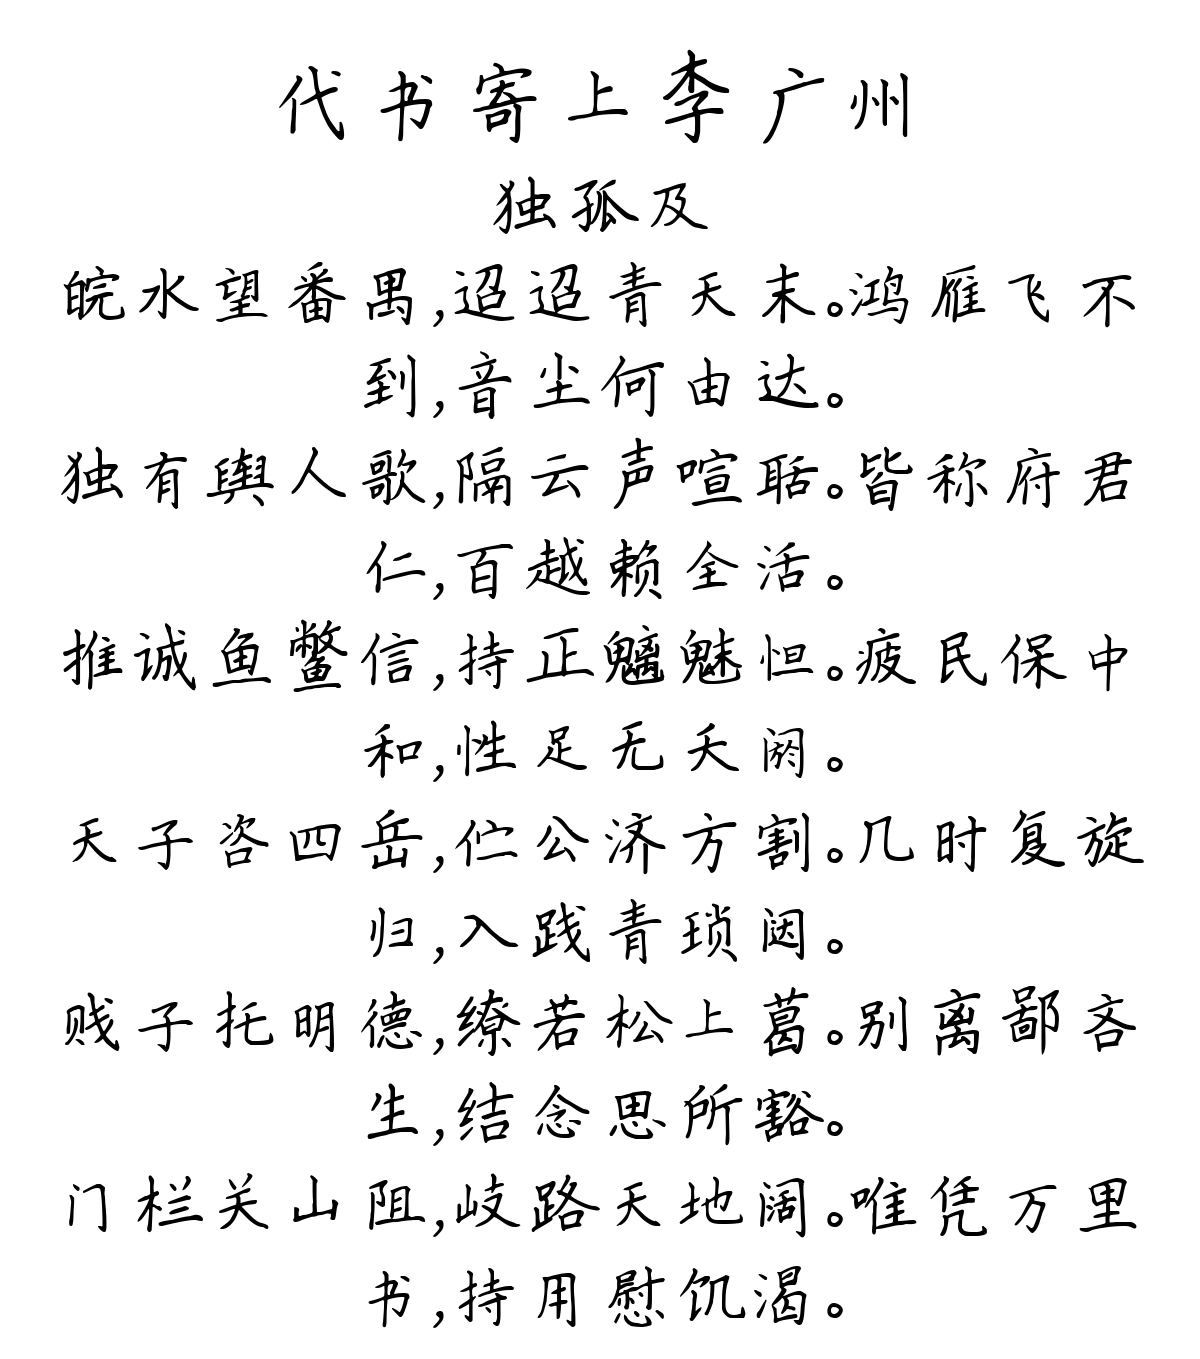 代书寄上李广州
独孤及
皖水望番禺,迢迢青天末。鸿雁飞不
到,音尘何由达。
独有舆人歌,隔云声喧聒。皆称府君
仁,百越赖全活。
推诚鱼鳖信,持正魑魅怛。疲民保中
和,性足无夭阏。
天子咨四岳,伫公济方割。几时复旋
归,入践青琐闼。
贱子托明德,缭若松上葛。别离鄙吝
生,结念思所豁。
门栏关山阻,岐路天地阔。唯凭万里
书,持用慰饥渴。